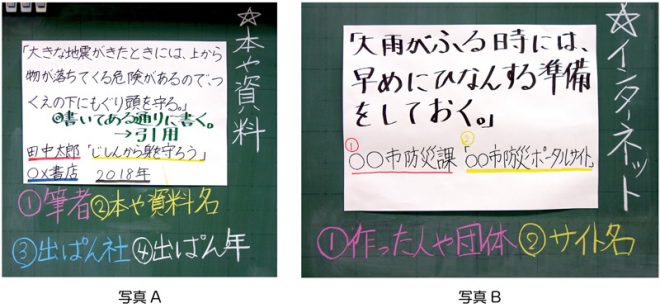 ☆本や資料
「大きな地震がきたときには、上から
物が落ちてくる危険があるので、つ
くえの下にもぐり頭を守る。」
◎書いてある通りに書く。
→引用
田中太郎「じしんから身を守ろう」
〇×書店 2018年
①筆者②本や資料名
③出ぱん社④出ぱん年
写真A
☆インターネット
「大雨がふる時には、
早めにひなんする準備
をしておく。」
① ②
〇〇市防災課「〇〇市防災ポータルサイト」
①作った人や団体②サイト名
写真B